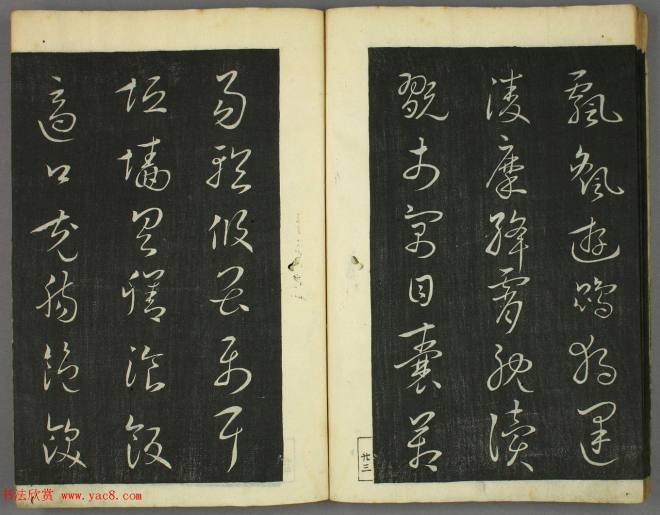 飄颻遊鵾獨運
凌摩絳霄耽讀
翫市寓目囊箱
廿三
易輶攸畏屬耳
垣墻具膳飡飯
適口充腸飽飫
书法欣赏 www.yac8.com